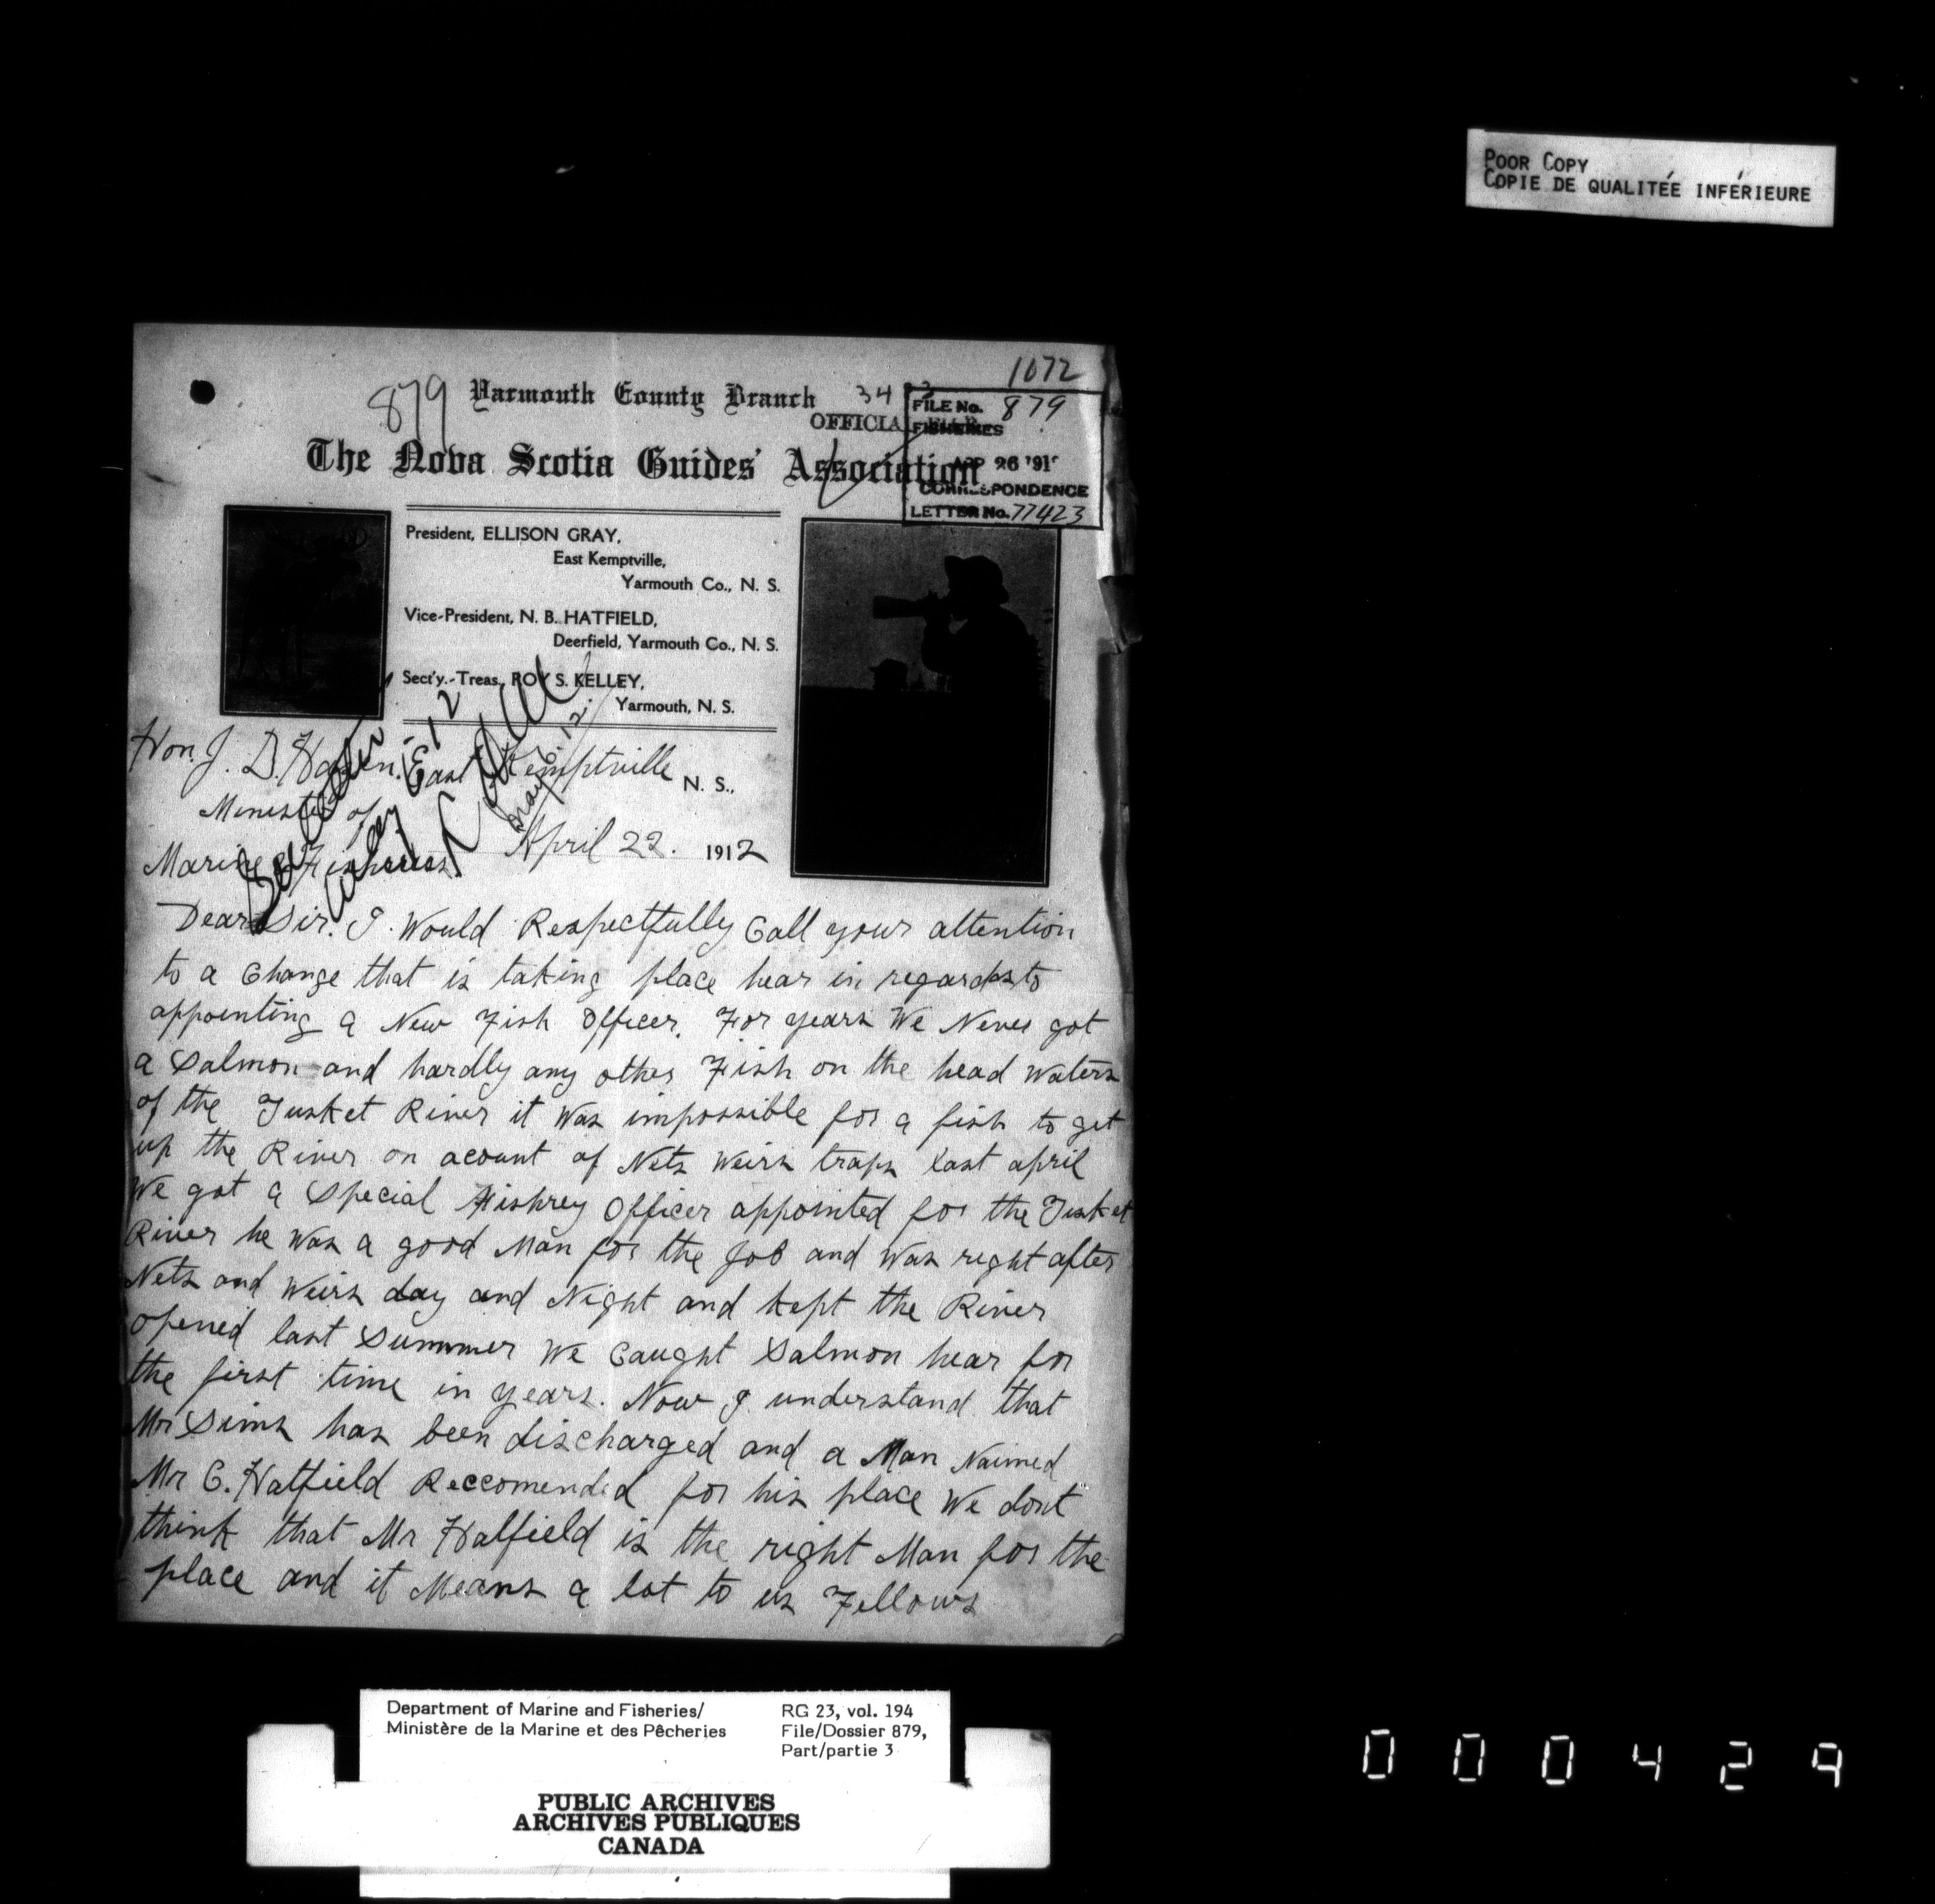 POOR COPY
COPIE DE QUALITÉE INFÉRIEURE
1072
879
Yarmouth County Branch
34
OFFICIAL
FILE No. 879
FISHERIES
APR 26 191
CORRESPONDENCE
LETTER No. 77423
The Nova Scotia Guides' Association
President, ELLISON GRAY,
East Kemptville,
Yarmouth Co., N. S.
Vice-President, N. B. HATFIELD,
Deerfield, Yarmouth Co., N. S.
Sect'y.-Treas., ROY S. KELLEY,
Yarmouth, N. S.
Hon. J. D. Hazen. East Kemptville N. S.,
Minister of
Marine & Fisheries. April 22. 1912
Dear Sir. I. Would Respectfully Call your attention
to a Change that is taking place hear in regards to
appointing a New Fish Officer. For years We Never got
a Salmon and hardly any other Fish on the head waters
of the Tusket River it Was impossible for a fish to get
up the River on acount of Nets Weirs traps last april
We got a Special Fishrey Officer appointed for the Tusket
River he Was a good Man for the Job and Was right after
Nets and Weirs day and Night and kept the River
opened last Summer We Caught Salmon hear for
the first time in years. Now I understand that
Mr Sims has been discharged and a Man Naimed
Mr C. Hatfield Reccomended for his place We dont
think that Mr Hatfield is the right Man for the
place and it Means a lot to us Fellows
Department of Marine and Fisheries/
Ministère de la Marine et des Pêcheries
RG 23, vol. 194
File/Dossier 879,
Part/partie 3
PUBLIC ARCHIVES
ARCHIVES PUBLIQUES
CANADA
000429